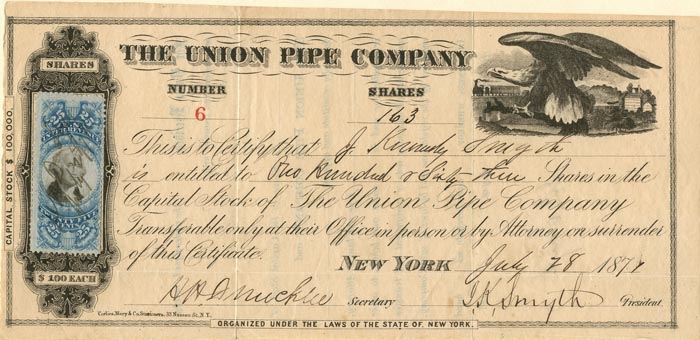 THE UNION PIPE COMPANY
NUMBER SHARES
6 163
SHARES
25 25
CAPITAL STOCK $ 100,000.
$ 100 EACH
This is to Certify that J. Kennedy Smyth
is entitled to One Hundred & Sixty three Shares in the
Capital Stock of The Union Pipe Company
Transferable only at their Office in person or by Attorney on surrender
of this Certificate.
NEW YORK July 28 187
Secretary J.K. Smyth President.
Corlies, Macy & Co. Stationers, 33 Nassau St. N.Y.
ORGANIZED UNDER THE LAWS OF THE STATE OF NEW YORK.